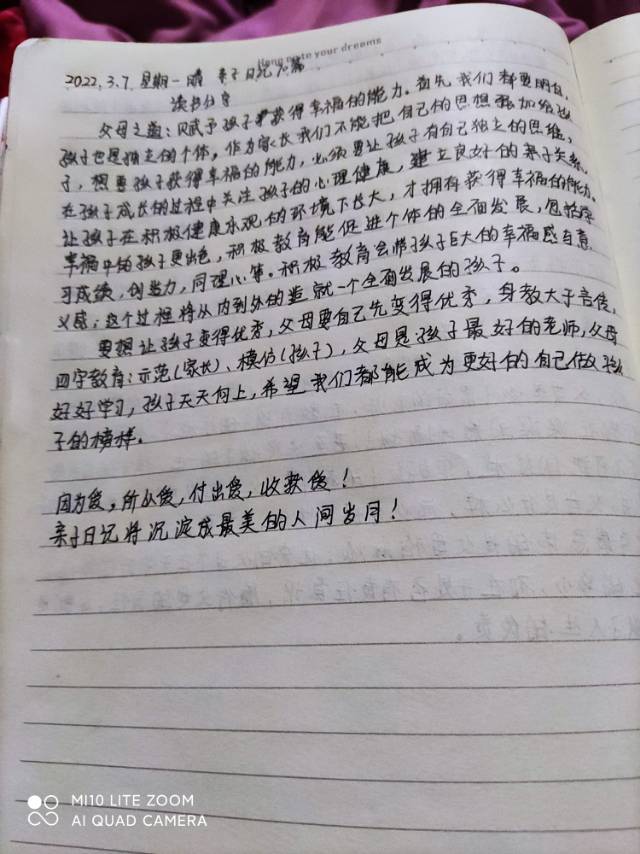 Hang onto your dreams
2022.3.7 星期一 晴 亲子日记 篇
读书分享
父母之道：赋予孩子获得幸福的能力。首先我们都要明白，
孩子也是独立的个体，作为家长我们不能把自己的思想强加给孩
子，想要孩子获得幸福的能力，必须要让孩子有自己独立的思维，
在孩子成长的过程中关注孩子的心理健康，建立良好的亲子关系。
让孩子在积极健康乐观的环境下长大，才拥有获得幸福的能力。
幸福中的孩子更出色，积极教育能促进个体的全面发展，包括学
习成绩，创造力，同理心等。积极教育会带孩子巨大的幸福感与意
义感；这个过程将从内到外的造就一个全面发展的孩子。
要想让孩子变得优秀，父母要自己先变得优秀，身教大于言传，
四字教育：示范（家长）、模仿（孩子），父母是孩子最好的老师，父母
好好学习，孩子天天向上，希望我们都能成为更好的自己做孩
子的榜样。
因为爱，所以爱，付出爱，收获爱！
亲子日记将沉淀成最美的人间岁月！
MI10 LITE ZOOM
AI QUAD CAMERA